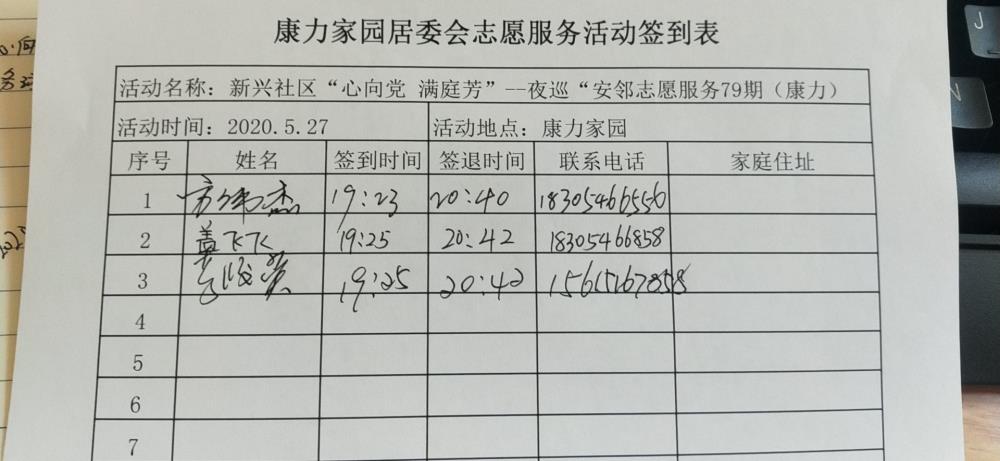 康力家园居委会志愿服务活动签到表
活动名称：新兴社区“心向党 满庭芳”--夜巡“安邻志愿服务79期（康力）
活动时间：2020.5.27 活动地点：康力家园
序号 姓名 签到时间 签退时间 联系电话 家庭住址
1 19:23 20:40 18305466556
2 盖飞飞 19:25 20:42 18305466858
3 19:25 20:42
4
5
6
7